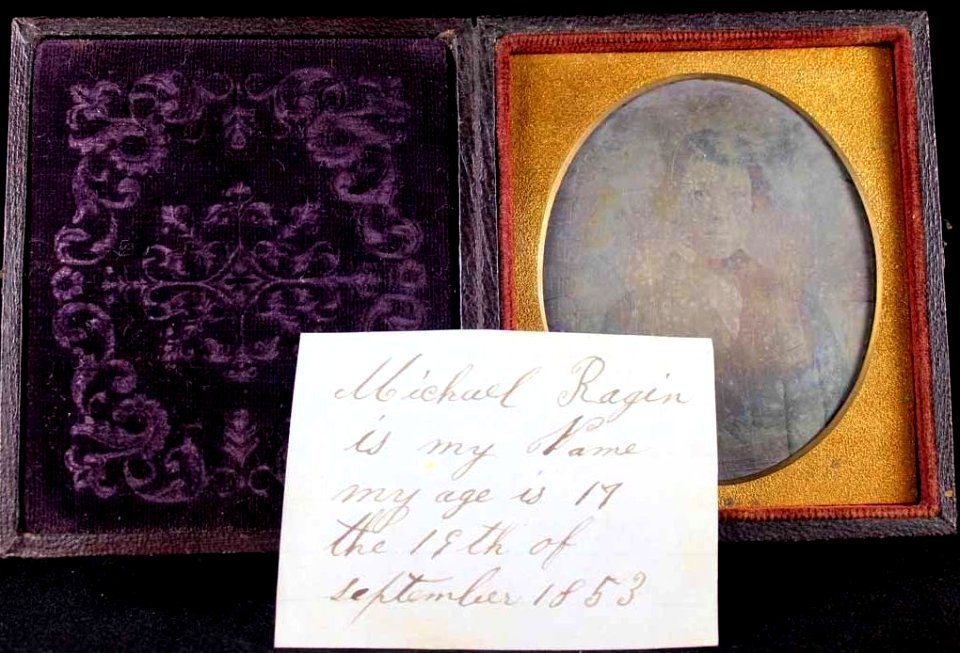 Michael Ragin
is my Name
my age is 17
the 19th of
september 1853